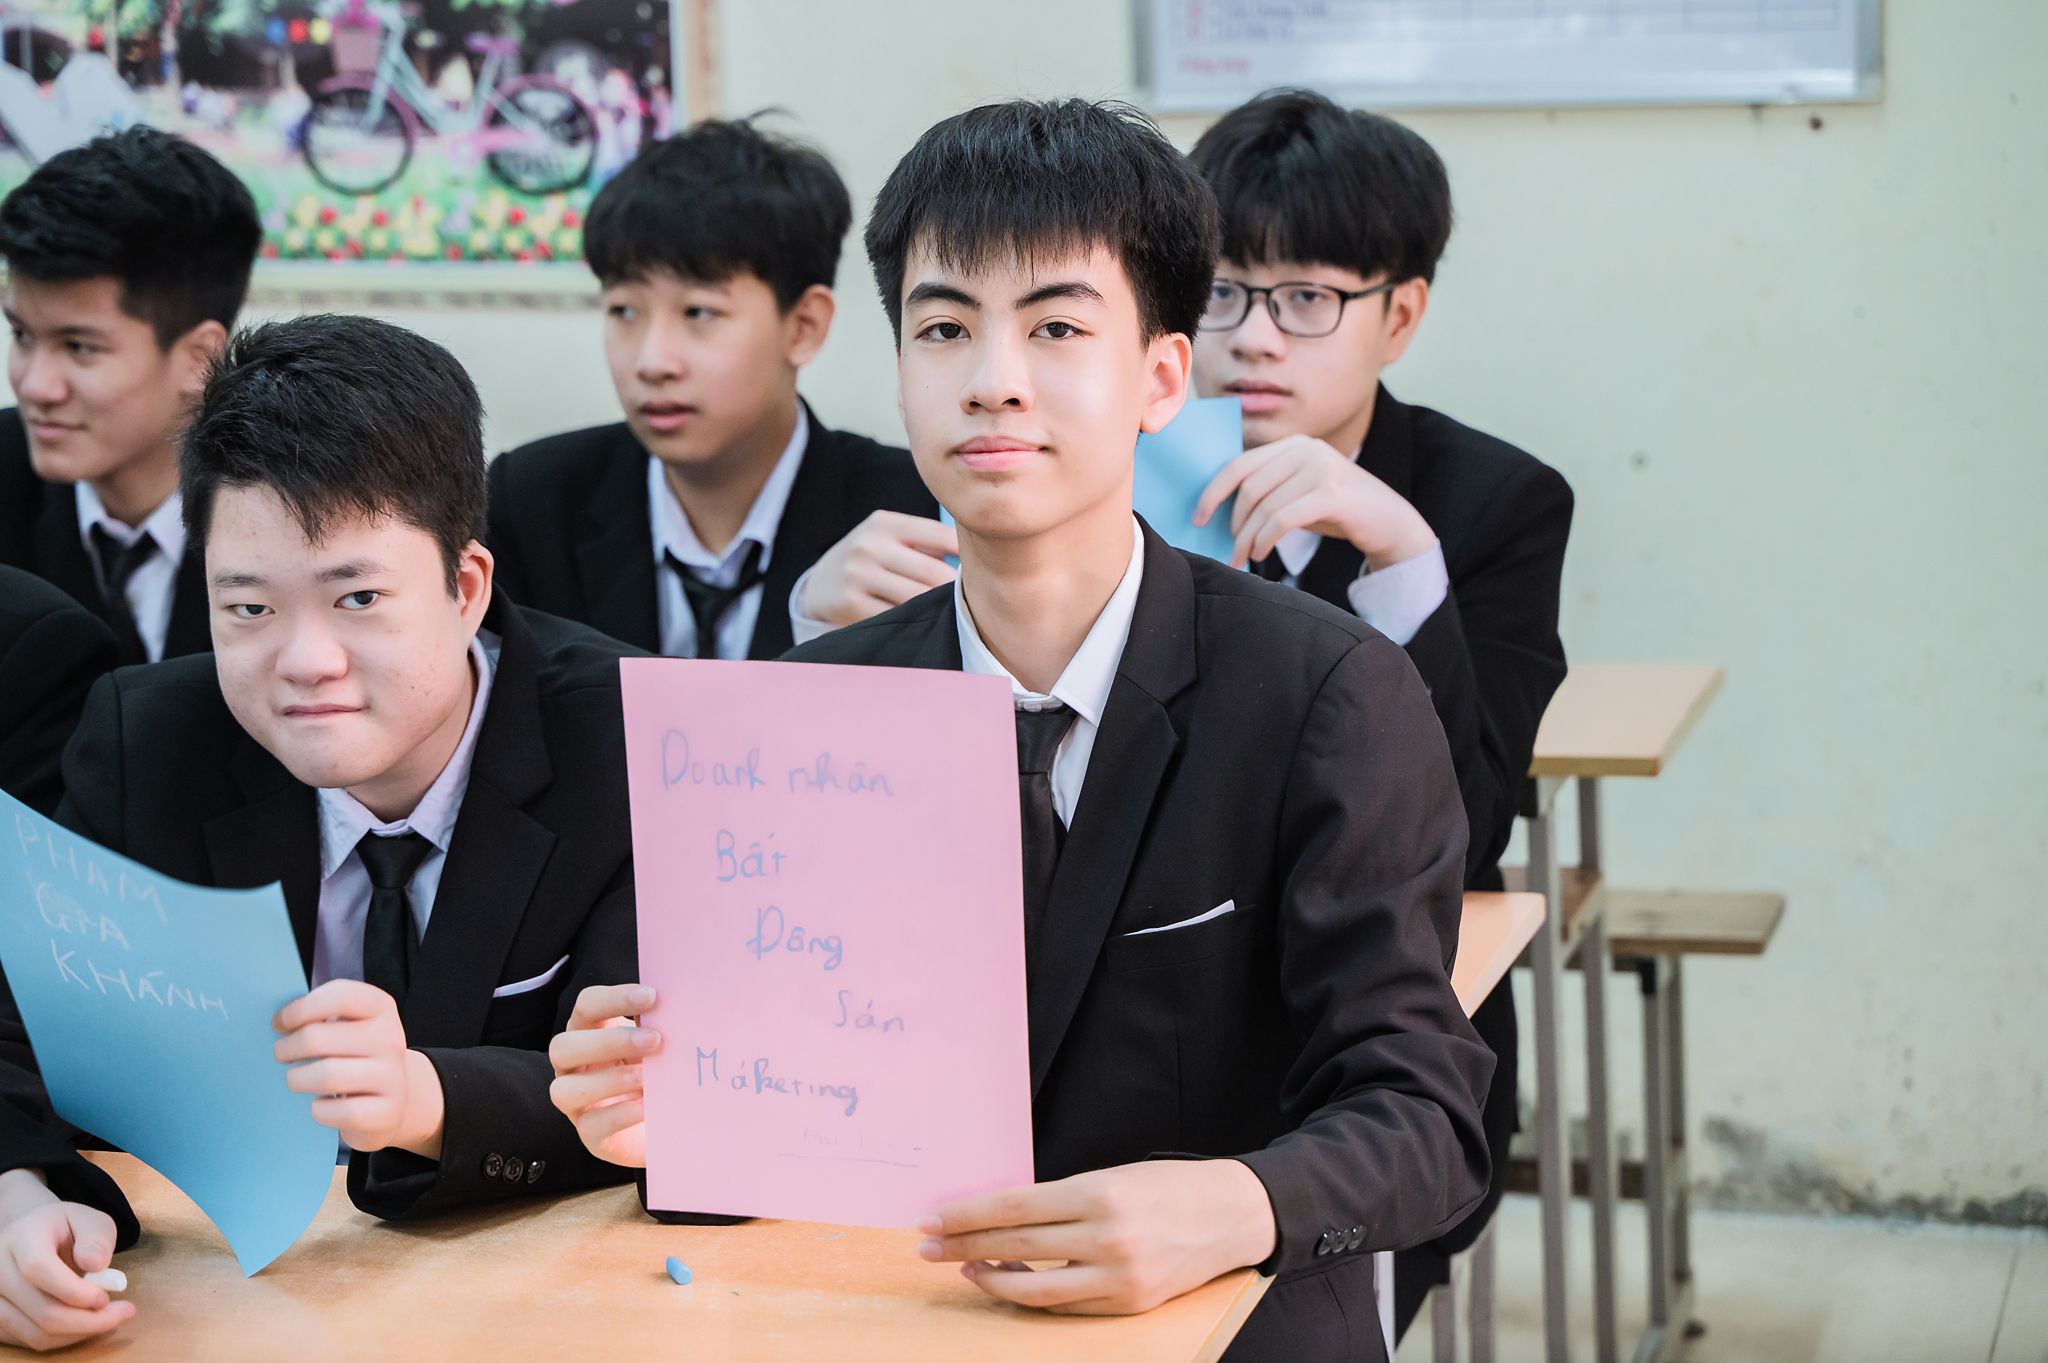 PHAM
GIA
KHÁNH
Doanh nhân
Bất
Động
Sản
Máketing